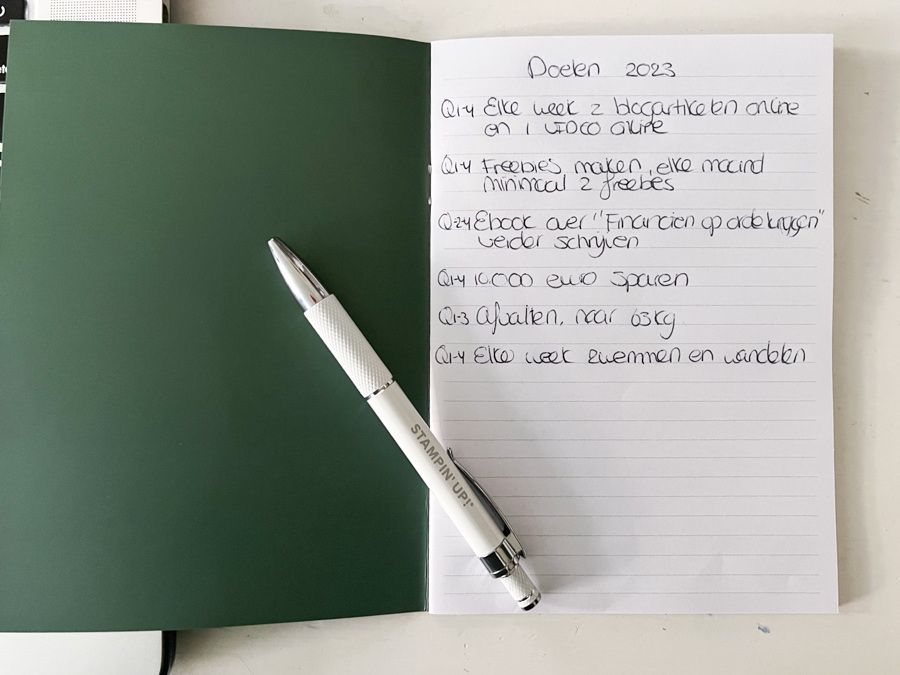 Doelen 2023
Q1-4 Elke week 2 blogartikelen online
en 1 video online
Q1-4 Freebies maken, elke maand
minimaal 2 freebies
Q2-4 Ebook over "Financien op orde krijgen"
verder schrijven
Q1-4 10.000 euro sparen
Q1-3 Afvallen, naar 63kg
Q1-4 Elke week zwemmen en wandelen
STAMPIN' UP!®